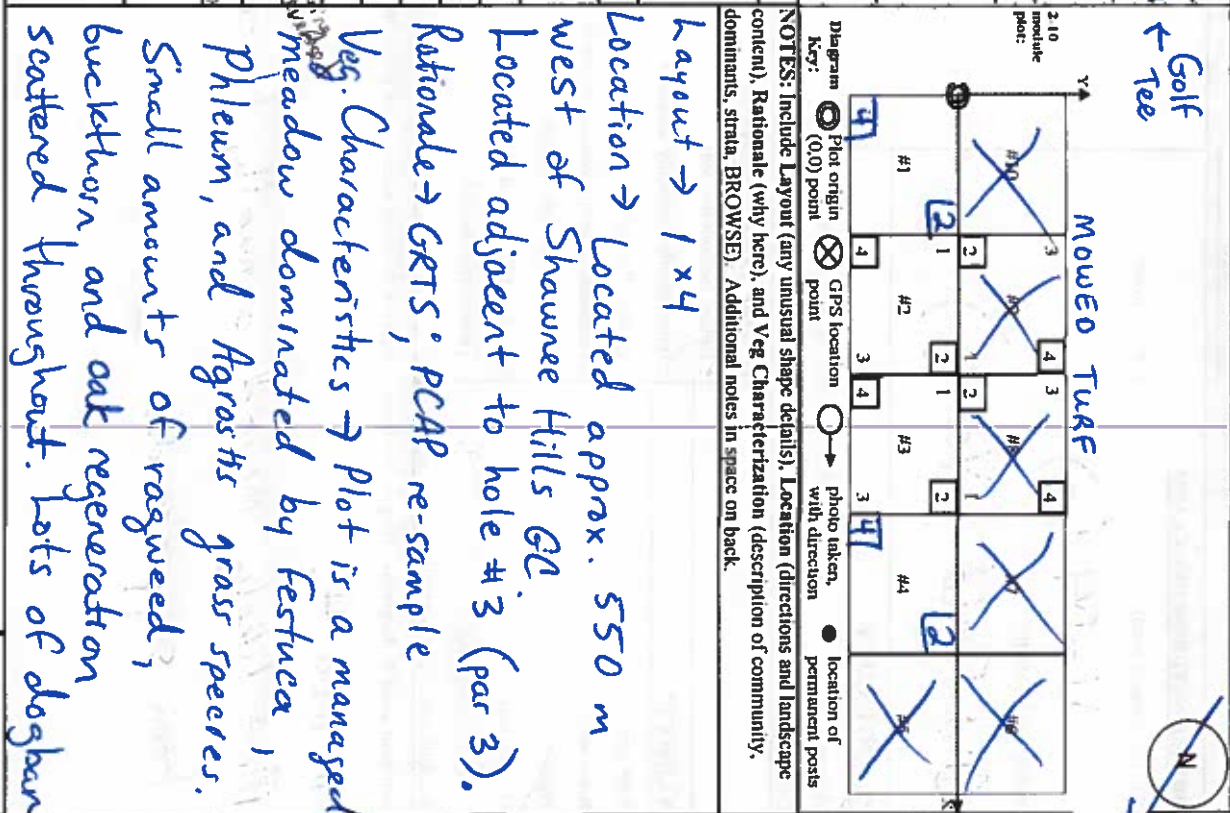 ← Golf
Tee
N
MOWED TURF
2x10
module
plot:
Y
#10
3
#9
4
2
1
3
#8
4
2
1
#7
#6
#1
2
4
1
#2
2
4
3
1
#3
2
4
3
#4
2
4
#5
X
Diagram
Key:
Plot origin
(0,0) point
GPS location
point
photo taken,
with direction
location of
permanent posts
NOTES: Include Layout (any unusual shape details), Location (directions and landscape
content), Rationale (why here), and Veg Characterization (description of community,
dominants, strata, BROWSE). Additional notes in space on back.
Layout → 1x4
Location → Located approx. 550 m
west of Shawnee Hills GC
Located adjacent to hole #3 (par 3).
Rationale → GRTS; PCAP re-sample
Veg. Characteristics → Plot is a managed
meadow dominated by festuca,
Phleum, and Agrostis grass species.
Small amounts of ragweed,
buckthorn and oak regeneration
scattered throughout. Lots of dogban